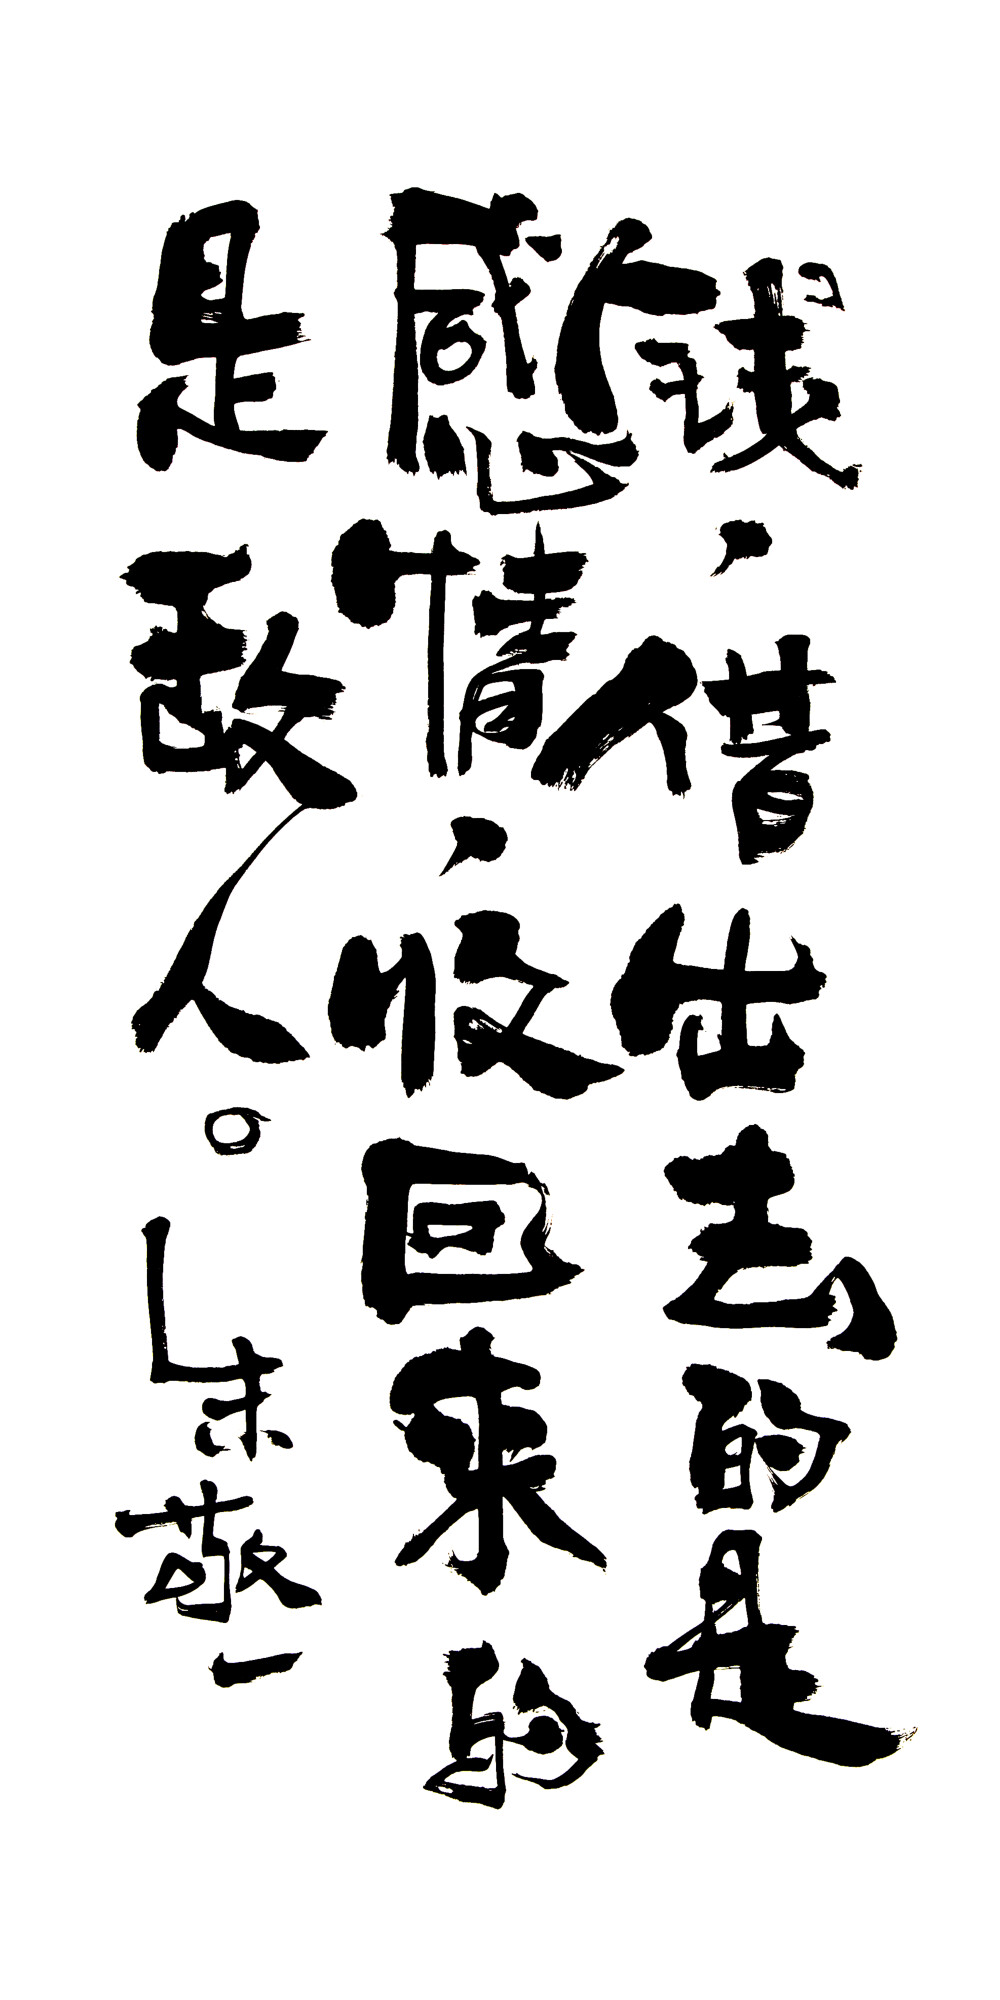 钱，借出去的是
感情，收回来的
是敌人。朱敬一